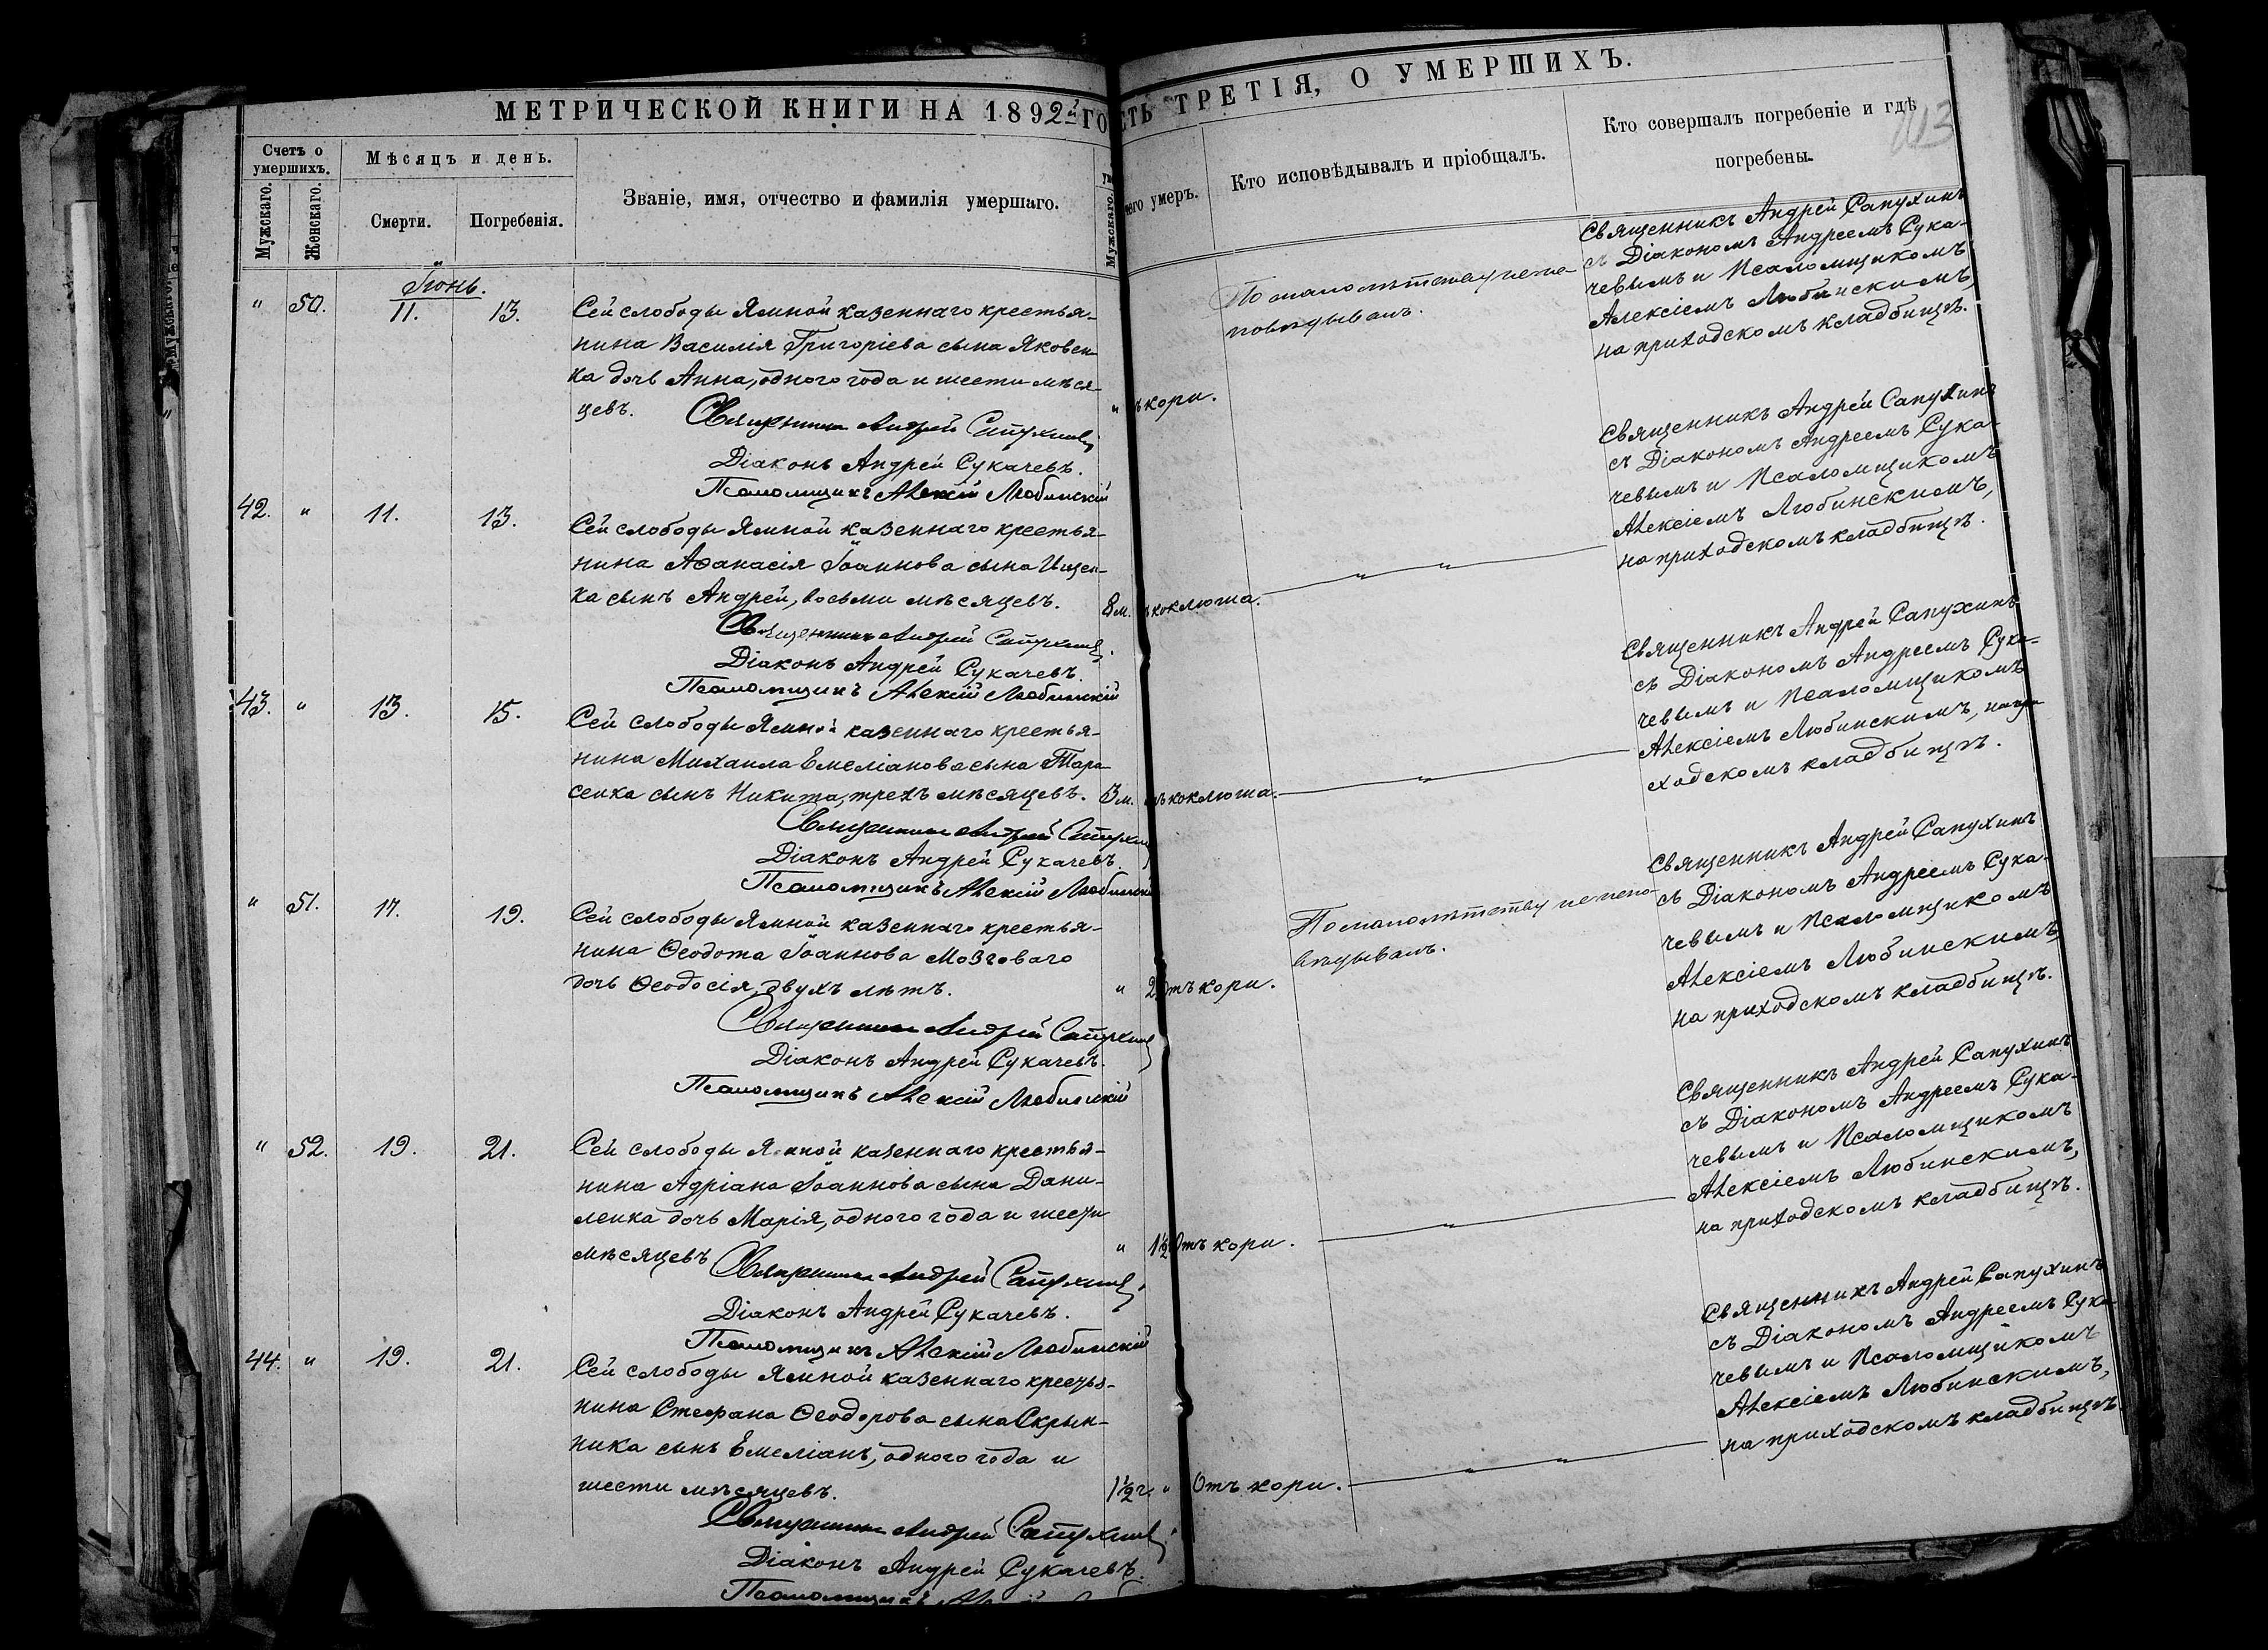 МЕТРИЧЕСКОЙ КНИГИ НА 1892й ГО
Счетъ о умершихъ.
Мѣсяцъ и день.
Мужскаго.
Женскаго.
Смерти.
Погребенія.
Званіе, имя, отчество и фамилія умершаго.
Мужскаго.
Іюнь.
" 50. 11. 13. Сей слободы Ямной казеннаго крестья-
нина Василія Григоріева сына Яковен-
ка дочь Анна, одного года и шести мѣся-
цевъ. "
Священникъ Андрей Сапухинъ
Діаконъ Андрей Сукачевъ.
Псаломщикъ Алексій Любинскій
42. " 11. 13. Сей слободы Ямной казеннаго крестья-
нина Аѳанасія Іоаннова сына Ищен-
ка сынъ Андрей, восьми мѣсяцевъ. 8 м.
Священникъ Андрей Сапухинъ
Діаконъ Андрей Сукачевъ.
Псаломщикъ Алексій Любинскій
43. " 13. 15. Сей слободы Ямной казеннаго крестья-
нина Михаила Емеліанова сына Тара-
сенка сынъ Никита, трехъ мѣсяцевъ. 3 м.
Священникъ Андрей Сапухинъ
Діаконъ Андрей Сукачевъ.
Псаломщикъ Алексій Любинскій
" 51. 17. 19. Сей слободы Ямной казеннаго крестья-
нина Ѳеодота Іоаннова Мозговаго
дочь Ѳеодосія, двухъ лѣтъ. " 2
Священникъ Андрей Сапухинъ
Діаконъ Андрей Сукачевъ.
Псаломщикъ Алексій Любинскій
" 52. 19. 21. Сей слободы Ямной казеннаго крестья-
нина Адріана Іоаннова сына Дани-
ленка дочь Марія, одного года и шести
мѣсяцевъ " 1½
Священникъ Андрей Сапухинъ
Діаконъ Андрей Сукачевъ.
Псаломщикъ Алексій Любинскій
44. " 19. 21. Сей слободы Ямной казеннаго крестья-
нина Стефана Ѳеодорова сына Скрын-
ника сынъ Емеліанъ, одного года и
шести мѣсяцевъ. 1½ г. "
Священникъ Андрей Сапухинъ
Діаконъ Андрей Сукачевъ.
Псаломщикъ
СТЬ ТРЕТІЯ, О УМЕРШИХЪ.
чего умеръ.
Кто исповѣдывалъ и пріобщалъ.
Кто совершалъ погребеніе и гдѣ
погребены.
113
ъ кори.
По малолѣтству не испо-
повѣдывалъ.
Священникъ Андрей Сапухинъ
съ Діакономъ Андреемъ Сука-
чевымъ и Псаломщикомъ
Алексіемъ Любинскимъ,
на приходскомъ кладбищѣ.
ъ коклюша. " "
Священникъ Андрей Сапухинъ
съ Діакономъ Андреемъ Сука-
чевымъ и Псаломщикомъ
Алексіемъ Любинскимъ,
на приходскомъ кладбищѣ.
тъ коклюша. "
Священникъ Андрей Сапухинъ
съ Діакономъ Андреемъ Сука-
чевымъ и Псаломщикомъ
Алексіемъ Любинскимъ, на при-
ходскомъ кладбищѣ.
Отъ кори.
По малолѣтству не испо-
вѣдывалъ.
Священникъ Андрей Сапухинъ
съ Діакономъ Андреемъ Сука-
чевымъ и Псаломщикомъ
Алексіемъ Любинскимъ,
на приходскомъ кладбищѣ.
Отъ кори. "
Священникъ Андрей Сапухинъ
съ Діакономъ Андреемъ Сука-
чевымъ и Псаломщикомъ
Алексіемъ Любинскимъ,
на приходскомъ кладбищѣ.
Отъ кори. " "
Священникъ Андрей Сапухинъ
съ Діакономъ Андреемъ Сука-
чевымъ и Псаломщикомъ
Алексіемъ Любинскимъ,
на приходскомъ кладбищѣ.